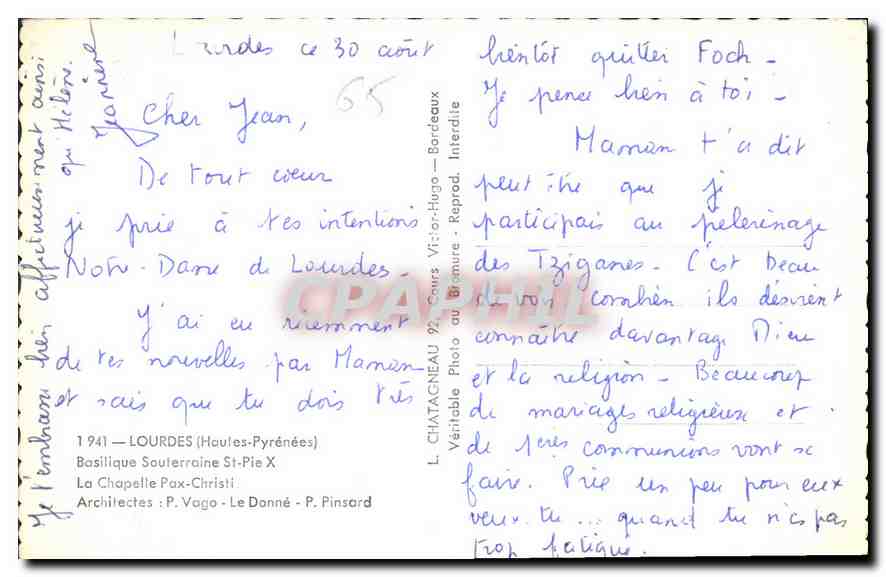 Lourdes ce 30 août
65
Cher Jean,
De tout coeur
je prie à tes intentions
Notre-Dame de Lourdes.
J'ai eu récemment
de tes nouvelles par Maman
et sais que tu dois très
bientôt quitter Foch -
Je pense bien à toi -
Maman t'a dit
peut être que je
participais au pelerinage
des Tziganes - C'est beau
de voir combien ils désirent
connaître davantage Dieu
et la religion - Beaucoup
de mariages religieux et
de 1ères communions vont se
faire. Prie un peu pour eux
veux-tu ... quand tu n'es pas
trop fatigué.
Je t'embrasse bien affectueusement ainsi
qu'Hélène.
Jeannine
1941 — LOURDES (Hautes-Pyrénées)
Basilique Souterraine St-Pie X
La Chapelle Pax-Christi
Architectes : P. Vago - Le Donné - P. Pinsard
L. CHATAGNEAU 92, Cours Victor-Hugo — Bordeaux
Véritable Photo au Bromure - Reprod. Interdite
CPAPHIL